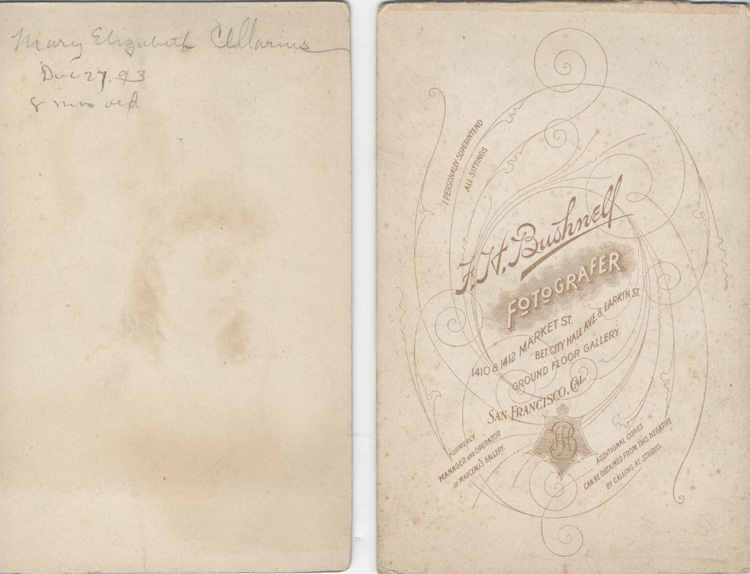 Mary Elizabeth Cellarius
Dec 27, 93
8 mos old
"I PERSONALLY SUPERINTEND
ALL SITTINGS
F. H. Bushnell
FOTOGRAFER
1410 & 1412 MARKET ST.
BET. CITY HALL AVE & LARKIN ST.
GROUND FLOOR GALLERY.
SAN FRANCISCO, CAL.
FORMERLY
MANAGER AND OPERATOR
OF MARCEAU'S GALLERY.
ADDITIONAL COPIES
CAN BE OBTAINED FROM THIS NEGATIVE
BY CALLING AT STUDIO.